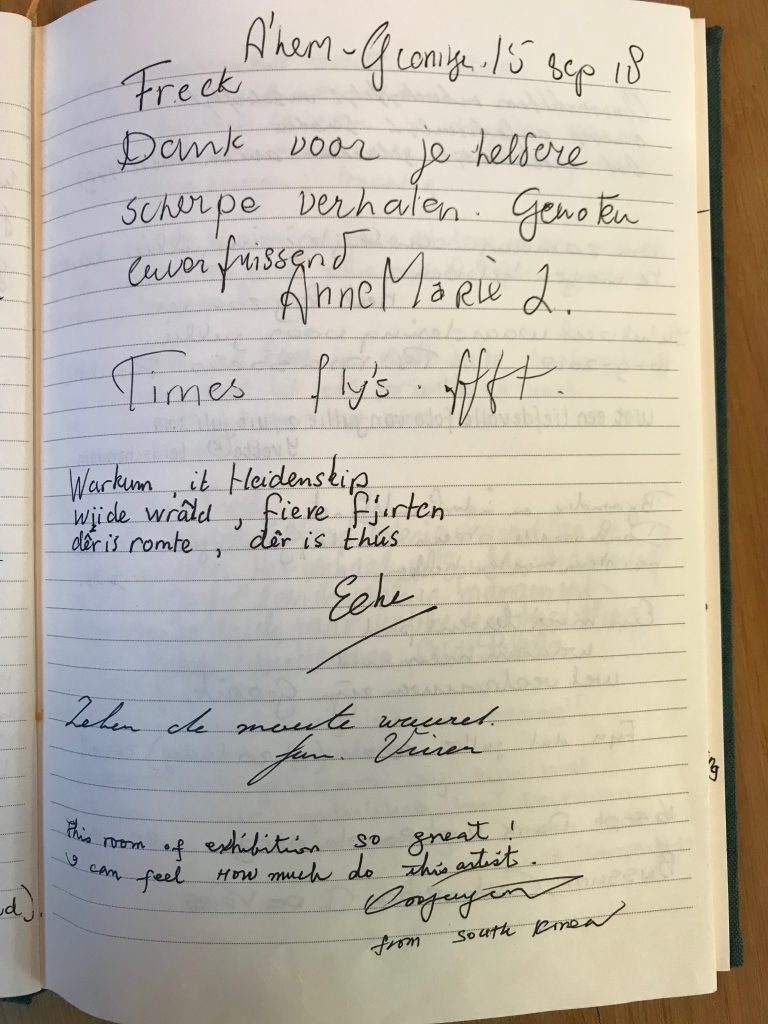 A'hem - 15 sep 18
Freek
Dank voor je heldere
scherpe verhalen. Genoten
AnneMarie L.
Times fly's. ffft.
Warkum, it Heidenskip
wijde wrâld, fiere fjirten
dêr is romte, dêr is thús
de moeite
fam.
this room of exhibition so great!
I can feel How much do this artist.
from South Korea
ud).